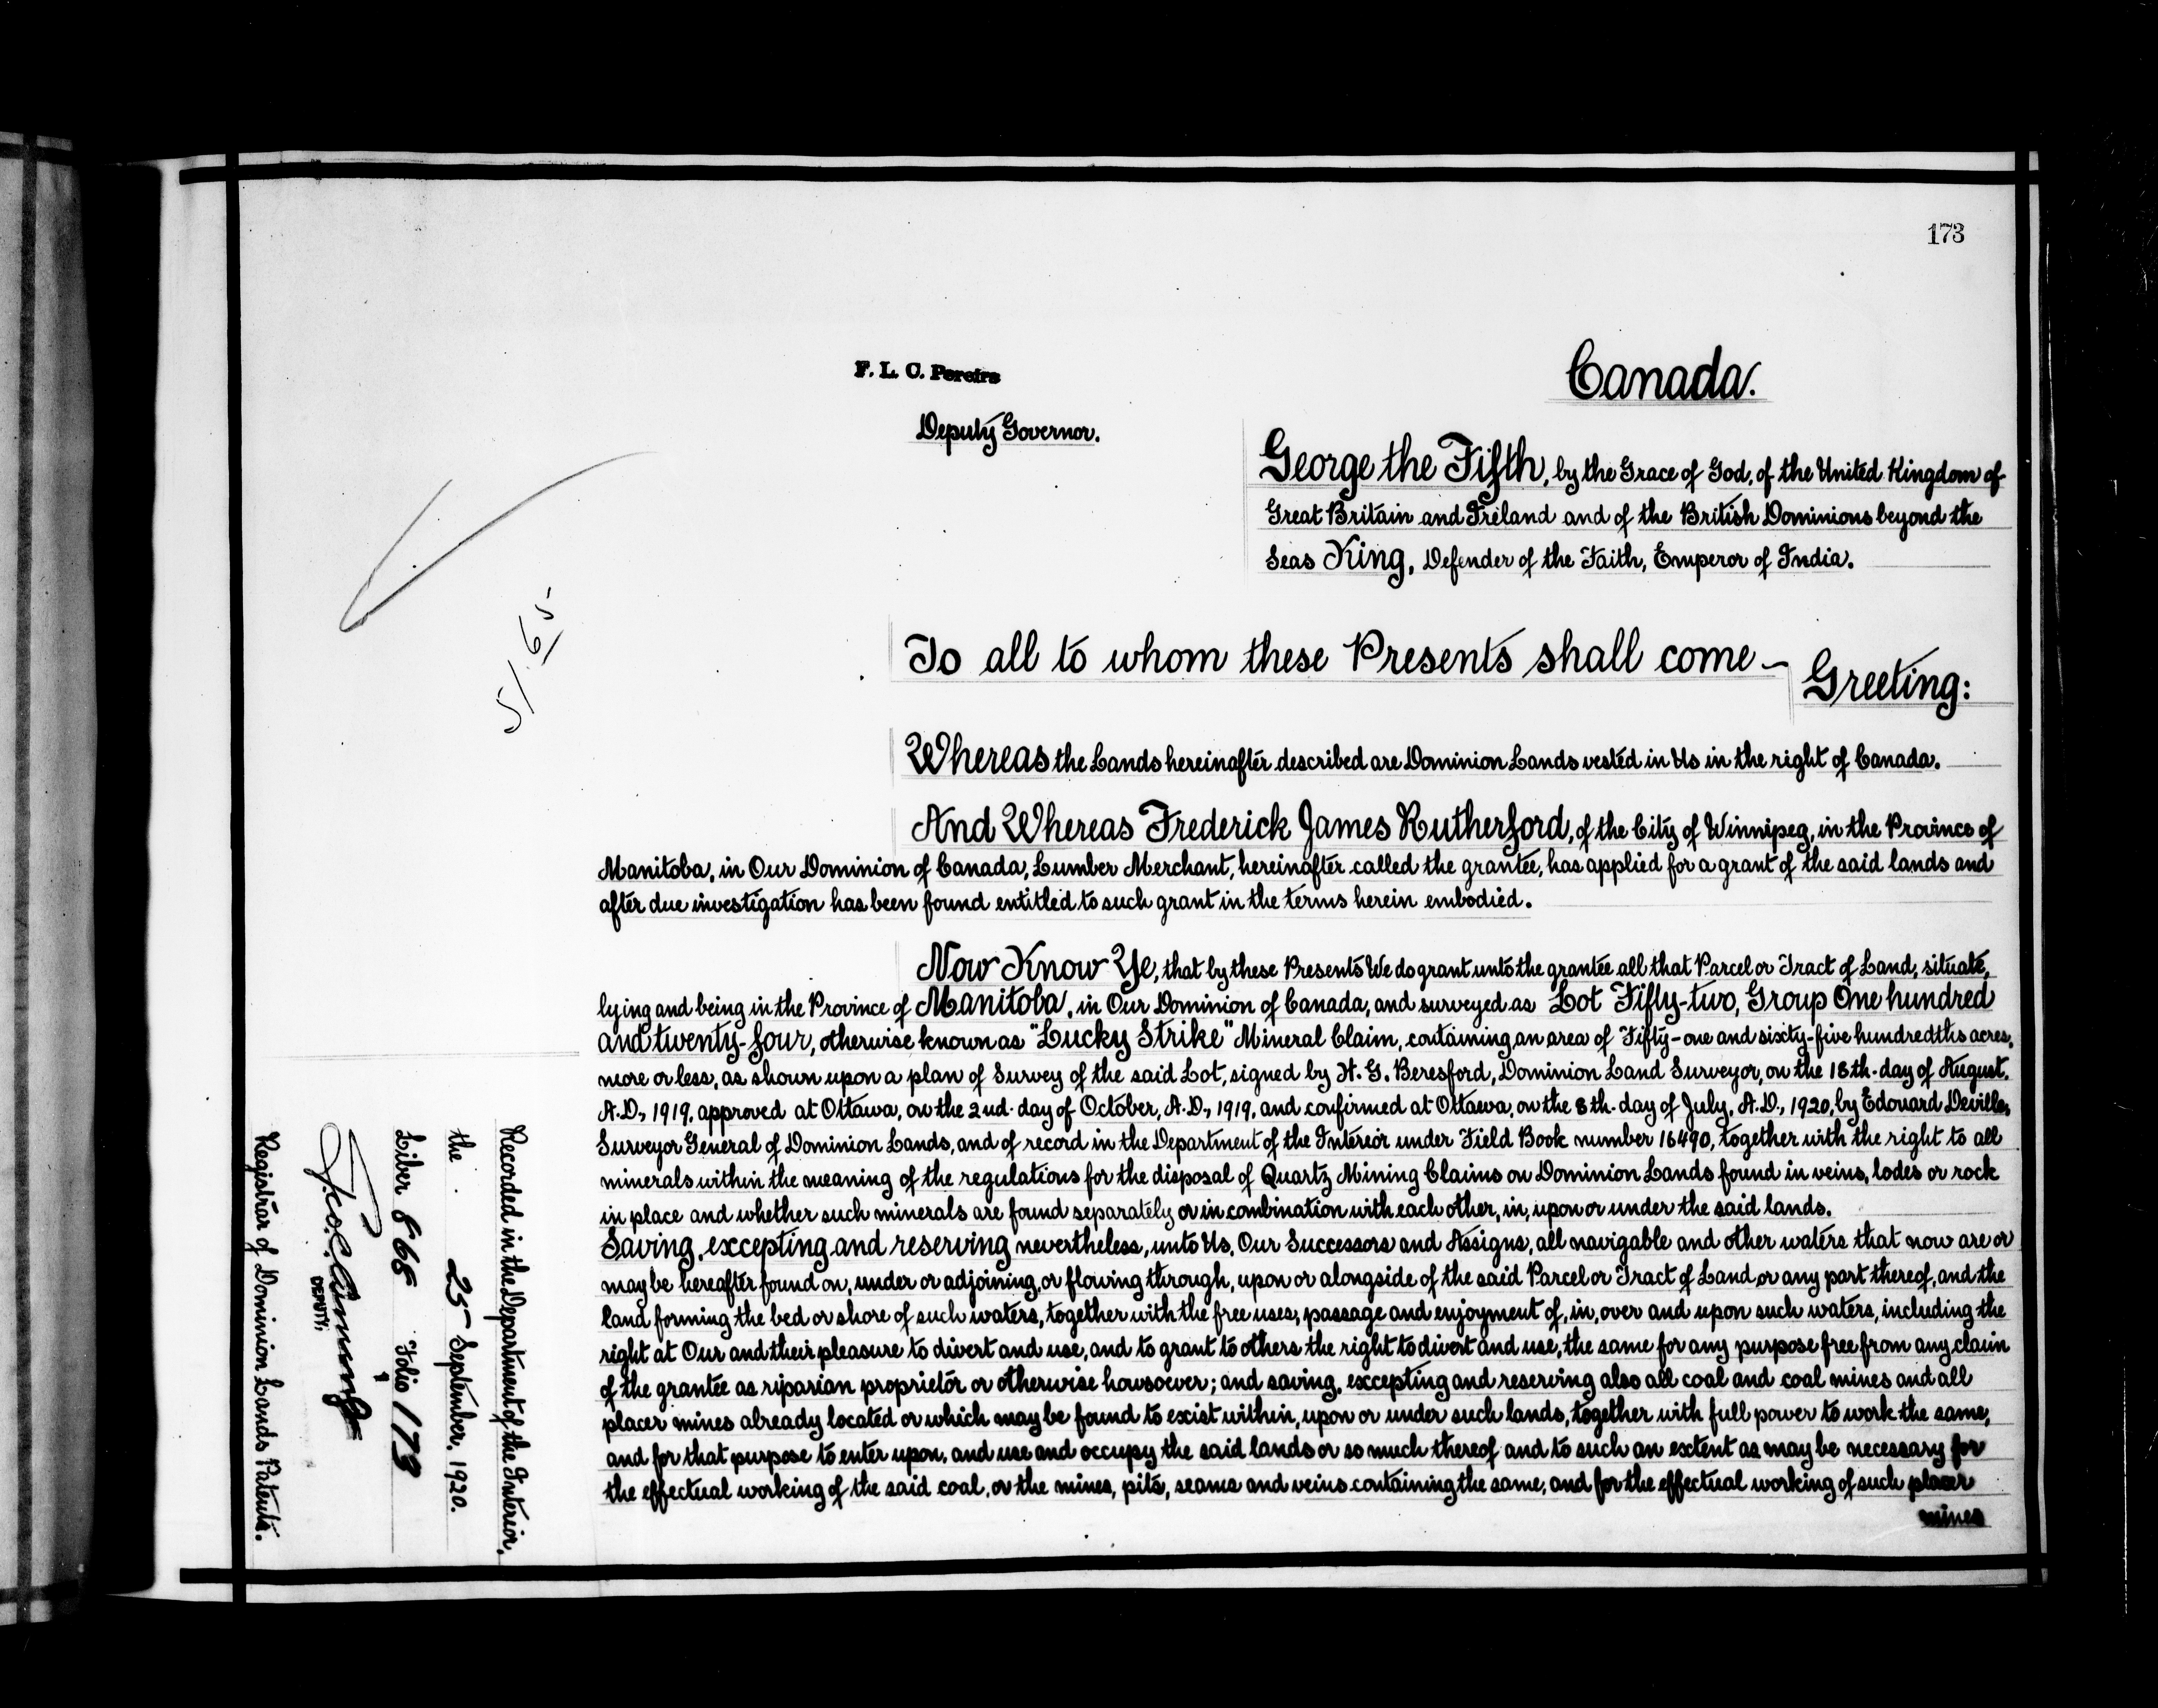 173
F. L. C. Pereira
Deputy Governor.
Canada.
George the Fifth, by the Grace of God, of the United Kingdom of
Great Britain and Ireland and of the British Dominions beyond the
Seas King, Defender of the Faith, Emperor of India.
51.65
To all to whom these Presents shall come ~
Greeting:
Whereas the Lands hereinafter described are Dominion Lands vested in Us in the right of Canada.
And Whereas Frederick James Rutherford, of the City of Winnipeg, in the Province of
Manitoba, in Our Dominion of Canada, Lumber Merchant, hereinafter called the grantee, has applied for a grant of the said lands and
after due investigation has been found entitled to such grant in the terms herein embodied.
Now Know Ye, that by these Presents We do grant unto the grantee all that Parcel or Tract of Land, situate,
lying and being in the Province of Manitoba, in Our Dominion of Canada, and surveyed as Lot Fifty-two, Group One hundred
and twenty-four, otherwise known as "Lucky Strike" Mineral Claim, containing an area of Fifty-one and sixty-five hundredths acres,
more or less, as shown upon a plan of Survey of the said Lot, signed by H. G. Beresford, Dominion Land Surveyor, on the 18th. day of August,
A.D., 1919, approved at Ottawa, on the 2nd. day of October, A.D., 1919, and confirmed at Ottawa, on the 8th. day of July, A.D., 1920, by Edouard Deville,
Surveyor General of Dominion Lands, and of record in the Department of the Interior under Field Book number 16490, together with the right to all
minerals within the meaning of the regulations for the disposal of Quartz Mining Claims on Dominion Lands found in veins, lodes or rock
in place and whether such minerals are found separately or in combination with each other, in, upon or under the said lands.
Saving, excepting and reserving nevertheless, unto Us, Our Successors and Assigns, all navigable and other waters that now are or
may be hereafter found on, under or adjoining, or flowing through, upon or alongside of the said Parcel or Tract of Land or any part thereof, and the
land forming the bed or shore of such waters, together with the free uses, passage and enjoyment of, in, over and upon such waters, including the
right at Our and their pleasure to divert and use, and to grant to others the right to divert and use, the same for any purpose free from any claim
of the grantee as riparian proprietor or otherwise howsoever; and saving, excepting and reserving also all coal and coal mines and all
placer mines already located or which may be found to exist within, upon or under such lands, together with full power to work the same,
and for that purpose to enter upon, and use and occupy the said lands or so much thereof and to such an extent as may be necessary for
the effectual working of the said coal, or the mines, pits, seams and veins containing the same, and for the effectual working of such placer
mines
Recorded in the Department of the Interior,
the 25 September, 1920.
Liber 868 Folio 173
DEPUTY,
Registrar of Dominion Lands Patents.